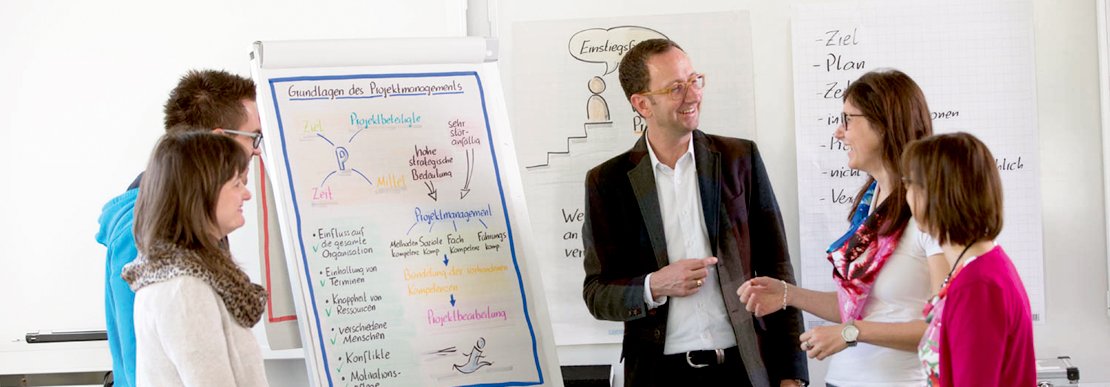 Grundlagen des Projektmanagements
Ziel
Projektbeteiligte
P
Zeit
Mittel
hohe
strategische
Bedeutung
sehr
stör-
anfällig
Projektmanagement
Methoden Soziale Fach Führungs
kompetenz Komp. Kompetenz komp
Bündelung der vorhandenen
Kompetenzen
Projektbearbeitung
• Einfluss auf
die gesamte
Organisation
• Einhaltung von
Terminen
• Knappheit von
Ressourcen
• Verschiedene
Menschen
• Konflikte
• Motivations-
Einstiegsf
P
We
an
ver
- Ziel
- Plan
- Ze
in onen
- P
- nich lich
- Ve